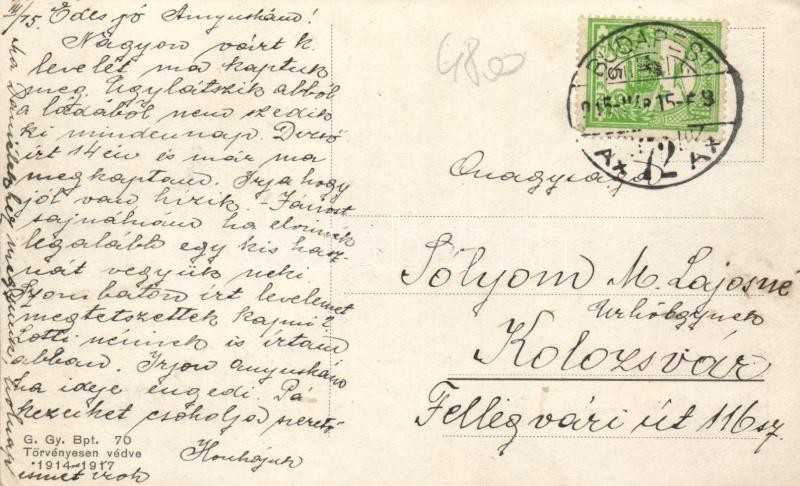 III/15. Édes jó Anyuskám!
Nagyon várt k.
levelét ma kaptuk
meg. Úgylátszik abból
a ládából nem szedik
ki mindennap. Dezső
írt 14 én és már ma
megkaptam. Irja hogy
jól van hízik. - Jánost
sajnálnám ha elvinnék
legalább egy kis hasz-
nát vegyük neki
Szombaton írt levelemet
megtetszettek kapni?
Lotti néninek is írtam
abban. Írjon anyuskám
ha ideje engedi. Pá
kezeiket csókolja szerető
ismét irok
G. Gy. Bpt. 70
Törvényesen védve
1914-1917
4800
BUDAPEST
72
Őnagysága
Sólyom M. Lajosné
Urhölgynek
Kolozsvár
Fellegvári út 116 sz.